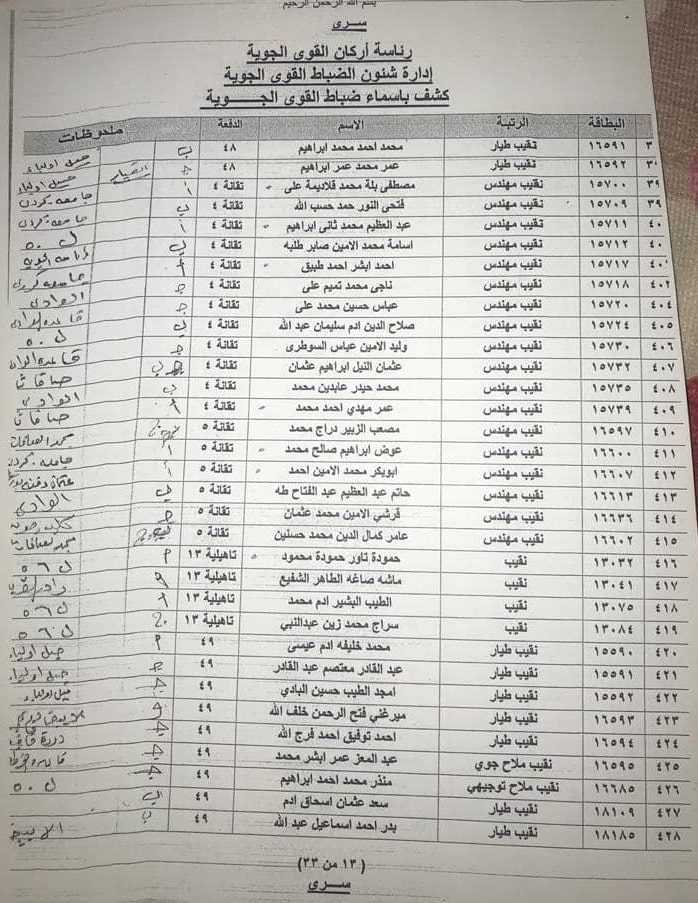 بسم الله الرحمن الرحيم
سرى
رئاسة أركان القوى الجوية
إدارة شئون الضباط القوى الجوية
كشف باسماء ضباط القوى الجوية
البطاقة الرتبة الاسم الدفعة ملحوظات
٣ ١٦٥٩١ نقيب طيار محمد احمد محمد ابراهيم ٤٨ ب جبل اولياء
٣٠ ١٦٥٩٢ نقيب طيار عمر محمد عمر ابراهيم ٤٨ جبل اولياء
٣٩ ١٥٧٠٠ نقيب مهندس مصطفى بلة محمد قلاديمة على تقانة ٤ أ جامعه كررى
٣٩ ١٥٧٠٩ نقيب مهندس فتحى النور حمد حسب الله تقانة ٤ ب جامعه كررى
٤٠ ١٥٧١١ نقيب مهندس عبد العظيم محمد ثانى ابراهيم تقانة ٤ أ ل ٥٠
٤٠ ١٥٧١٢ نقيب مهندس اسامة محمد الامين صابر طلبه تقانة ٤ ب
٤٠١ ١٥٧١٧ نقيب مهندس احمد ابشر احمد طبيق تقانة ٤ أ جامعه كررى
٤٠٢ ١٥٧١٨ نقيب مهندس ناجى محمد تميم على تقانة ٤ ج الوادى
٤٠٤ ١٥٧٢٠ نقيب مهندس عباس حسين محمد على تقانة ٤ ج قاعده الوادى
٤٠٥ ١٥٧٢٤ نقيب مهندس صلاح الدين ادم سليمان عبد الله تقانة ٤ ب ل ٥٠
٤٠٦ ١٥٧٣٠ نقيب مهندس وليد الامين عباس السوطرى تقانة ٤ ج قاعده الوادى
٤٠٧ ١٥٧٣٢ نقيب مهندس عثمان النيل ابراهيم عثمان تقانة ٤ ب صافات
٤٠٨ ١٥٧٣٥ نقيب مهندس محمد حيدر عابدين محمد تقانة ٤ ب الوادى
٤٠٩ ١٥٧٣٩ نقيب مهندس عمر مهدي احمد محمد تقانة ٤ أ صافات
٤١٠ ١٦٥٩٧ نقيب مهندس مصعب الزبير دراج محمد تقانة ٥ مجمد الصافات
٤١١ ١٦٦٠٠ نقيب مهندس عوض ابراهيم صالح محمد تقانة ٥ أ جامعه كررى
٤١٢ ١٦٦٠٧ نقيب مهندس ابوبكر محمد الامين احمد تقانة ٥ أ عثمان دقنه
٤١٣ ١٦٦١٣ نقيب مهندس حاتم عبد العظيم عبد الفتاح طه تقانة ٥ ب الوادى
٤١٤ ١٦٦٣٦ نقيب مهندس قرشي الامين محمد عثمان تقانة ٥ ج
٤١٥ ١٦٦٠٢ نقيب مهندس عامر كمال الدين محمد حسنين تقانة ٥ مجمد الصافات
٤١٦ ١٣٠٣٢ نقيب حمودة تاور حمودة محمود تاهيلية ١٣ م ل ٥٦
٤١٧ ١٣٠٤١ نقيب ماشه صاغه الطاهر الشفيع تاهيلية ١٣
٤١٨ ١٣٠٧٥ نقيب الطيب البشير ادم محمد تاهيلية ١٣ أ ل ٥٦
٤١٩ ١٣٠٨٤ نقيب سراج محمد زين عبدالنبي تاهيلية ١٣ ج ل ٥٦
٤٢٠ ١٥٥٩٠ نقيب طيار محمد خليفه ادم عيسى ٤٩ م جبل اولياء
٤٢١ ١٥٥٩١ نقيب طيار عبد القادر معتصم عبد القادر ٤٩ ج جبل اولياء
٤٢٢ ١٥٥٩٢ نقيب طيار امجد الطيب حسين البادي ٤٩ ج جبل اولياء
٤٢٣ ١٦٥٩٣ نقيب طيار ميرغني فتح الرحمن خلف الله ٤٩
٤٢٤ ١٦٥٩٤ نقيب طيار احمد توفيق احمد فرج الله ٤٩ ج دورة
٤٢٥ ١٦٥٩٥ نقيب ملاح جوي عبد المعز عمر ابشر محمد ٤٩ ج
٤٢٦ ١٦٦٨٥ نقيب ملاح توجيهي منذر محمد احمد ابراهيم ٤٩ ج ل ٥٠
٤٢٧ ١٨١٠٩ نقيب طيار سعد عثمان اسحاق ادم ٤٩ ب
٤٢٨ ١٨١٨٥ نقيب طيار بدر احمد اسماعيل عبد الله ٤٩ ب الابيض
(١٣ من ٣٣)
سرى